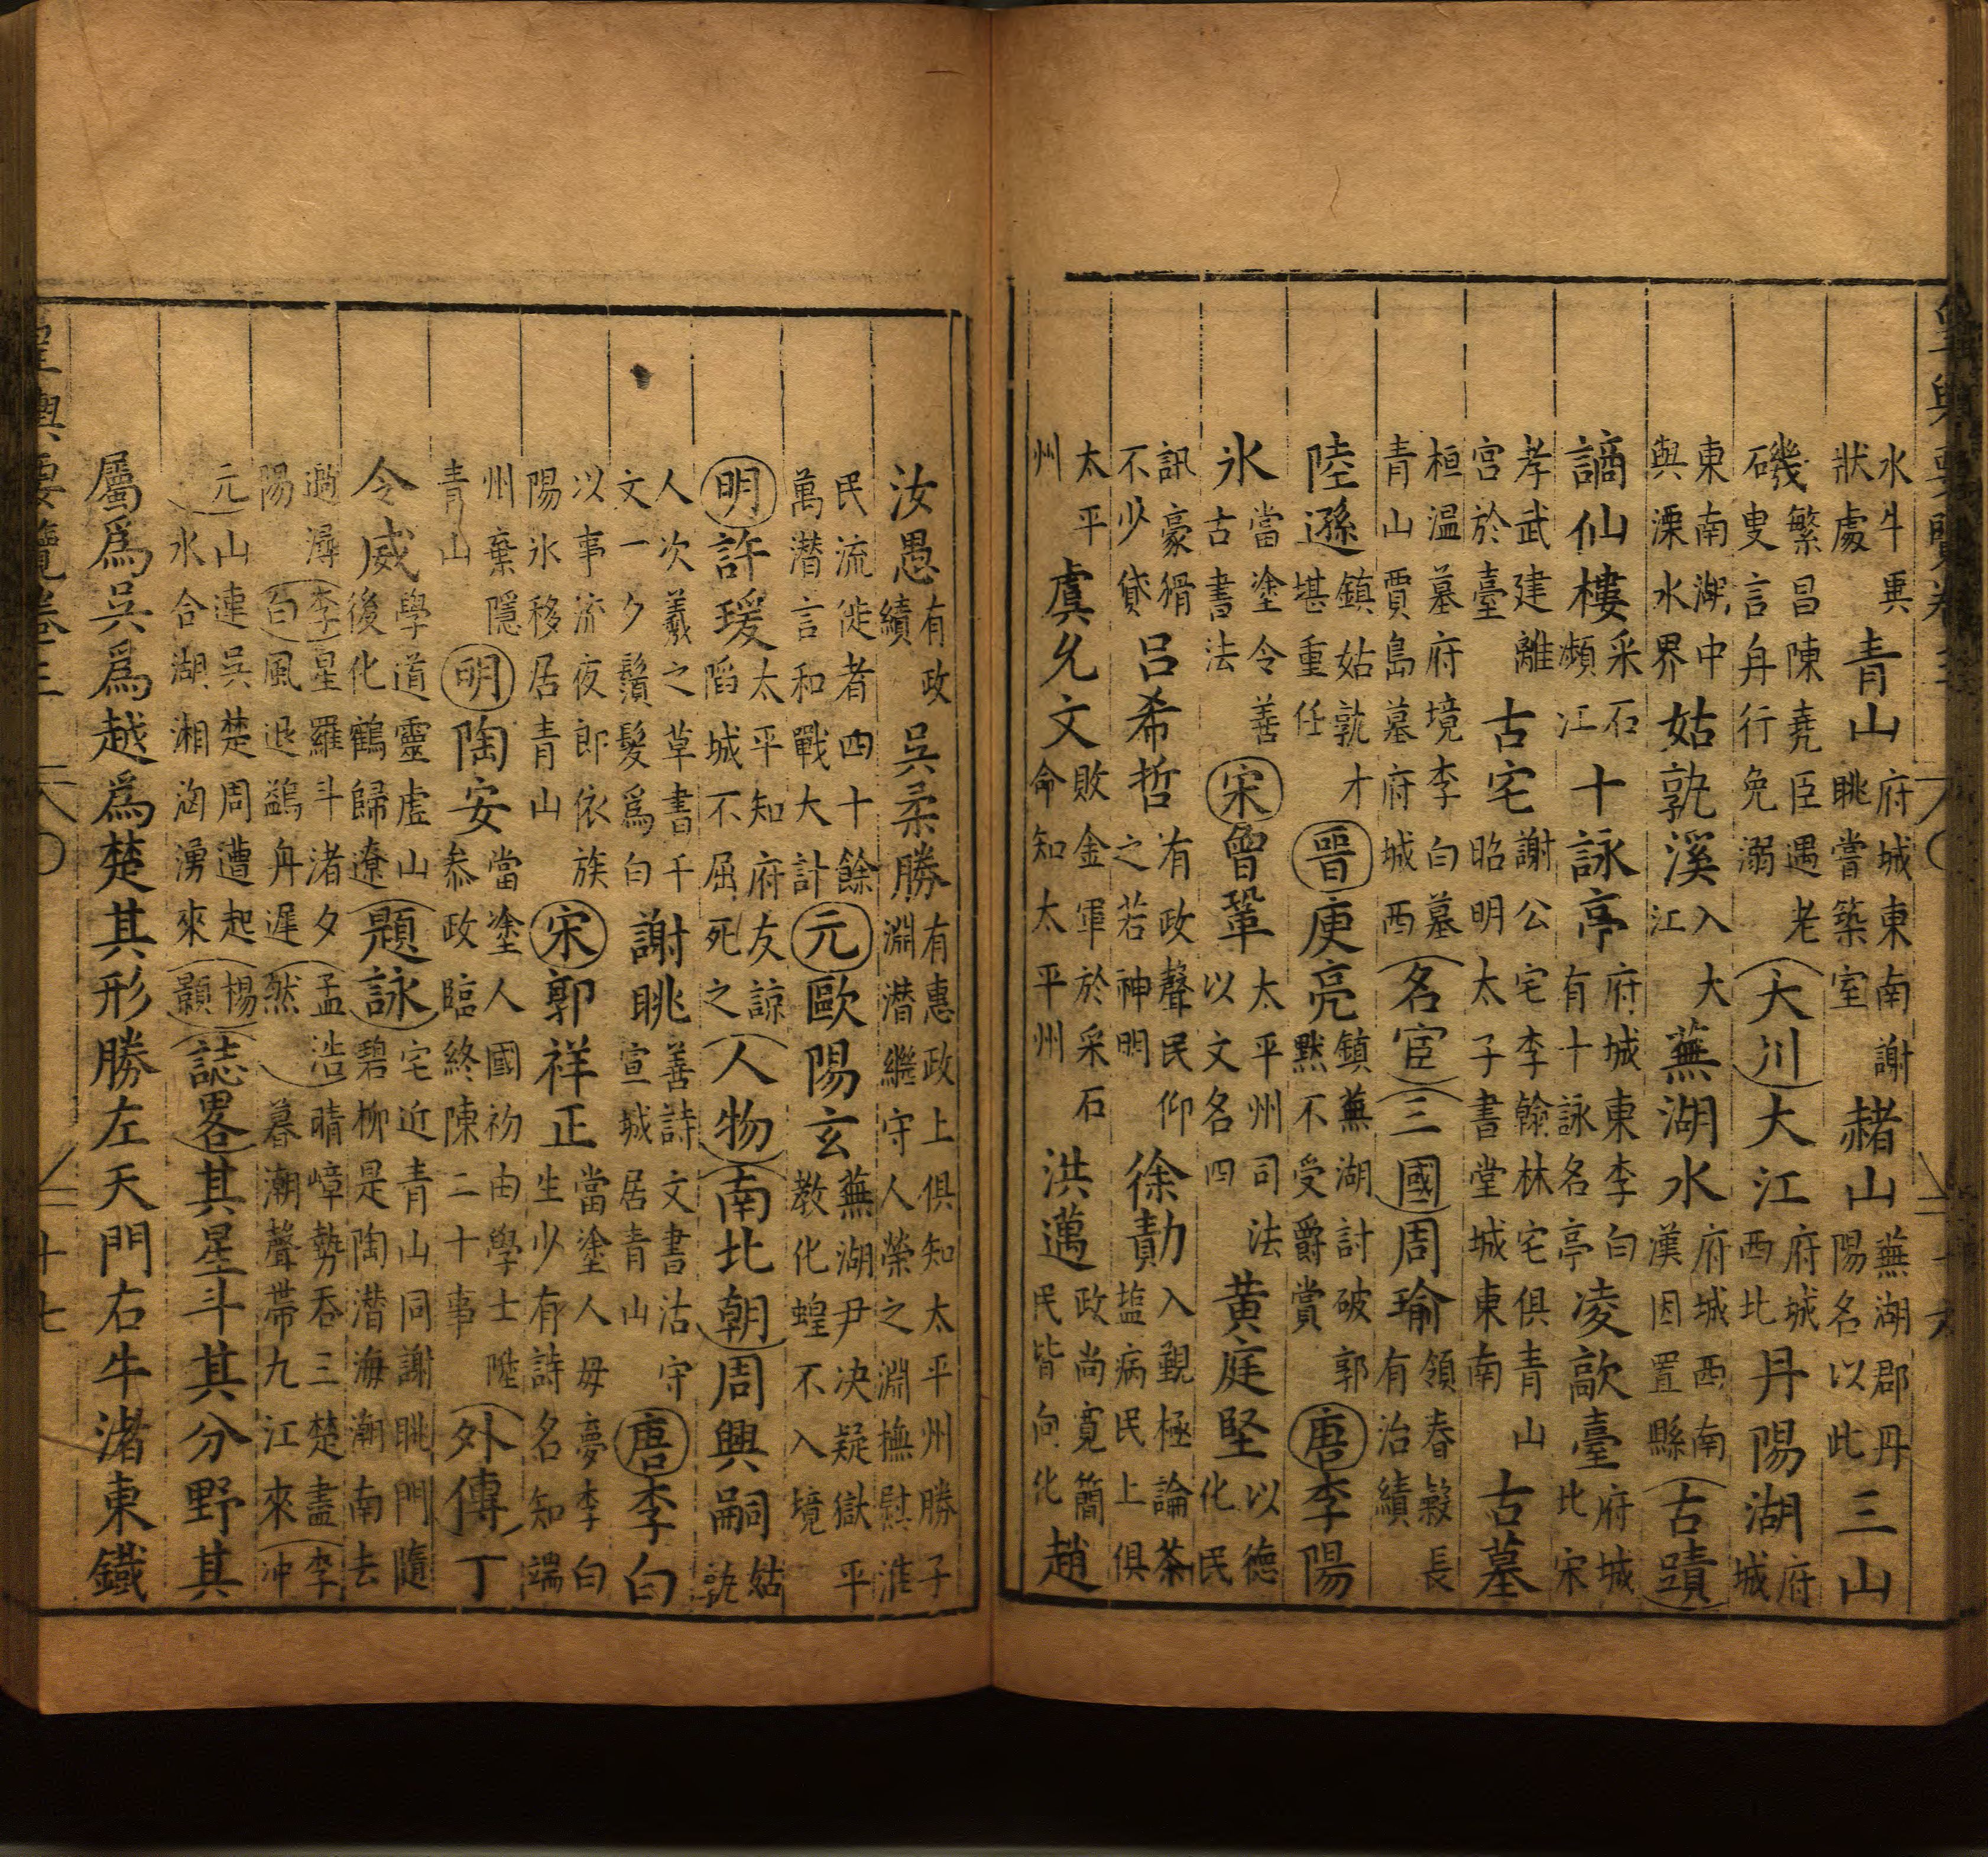 水牛異狀處青山府城東南謝眺嘗築室赭山蕪湖郡丹陽名以此三山
磯繁昌陳堯臣遇老叟言舟行免溺大川大江府城西北丹陽湖府城
東南湖中與溧水界姑孰溪入大江蕪湖水府城西南漢因置縣古蹟
謫仙樓采石瀕江十詠亭府城東李白有十詠名亭凌歊臺府城比宋
孝武建離宮於臺古宅謝公宅李翰林宅俱青山昭明太子書堂城東南古墓
桓温墓府境李白墓青山賈島墓府城西名宦三國周瑜領春榖長有治績
陸遜鎮姑孰才堪重任晉庾亮鎮蕪湖討破郭默不受爵賞唐李陽
氷當塗令善古書法宋曾鞏太平州司法以文名四黄庭堅以德化民
訊豪猾不少貸吕希哲有政聲民仰之若神明徐勣入覲極論茶塩病民上俱
太平州虞允文敗金軍於采石命知太平州洪邁政尚寛簡民皆向化趙
汝愚有政績吳柔勝有惠政上俱知太平州勝子淵潛繼守人榮之淵撫慰淮
民流徙者四十餘萬潛言和戰大計元歐陽玄蕪湖尹决疑獄平教化蝗不入境
明許瑗太平知府友諒陷城不屈死之人物南北朝周興嗣姑孰
人次羲之草書千文一夕鬚髮爲白謝眺善詩文書沽守宣城居青山唐李白
以事流夜郎依族陽氷移居青山宋郭祥正當塗人母夢李白生少有詩名知端
州棄隱青山明陶安當塗人國初由學士陞叅政臨終陳二十事外傳丁
令威學道靈虛山後化鶴歸遼題詠宅近青山同謝眺門隨碧柳是陶潛海潮南去
過潯陽李白星羅斗渚夕風退鷁舟遲孟浩然晴嶂勢吞三楚盡暮潮聲帶九江來李冲
元山連吳楚周遭起水合湖湘洶湧來楊顯誌畧其星斗其分野其
屬爲吳爲越爲楚其形勝左天門右牛渚東鐵